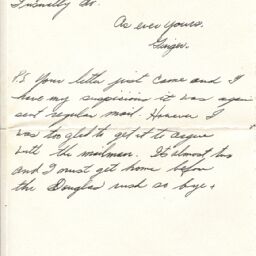 Usually do.
As ever yours,
Ginger.
P.S Your letter just came and I
have my suspicions it was again
sent regular mail. However I
was too glad to get it to argue
with the mailman. It's almost two
and I must get home before
the Douglas rush so bye.